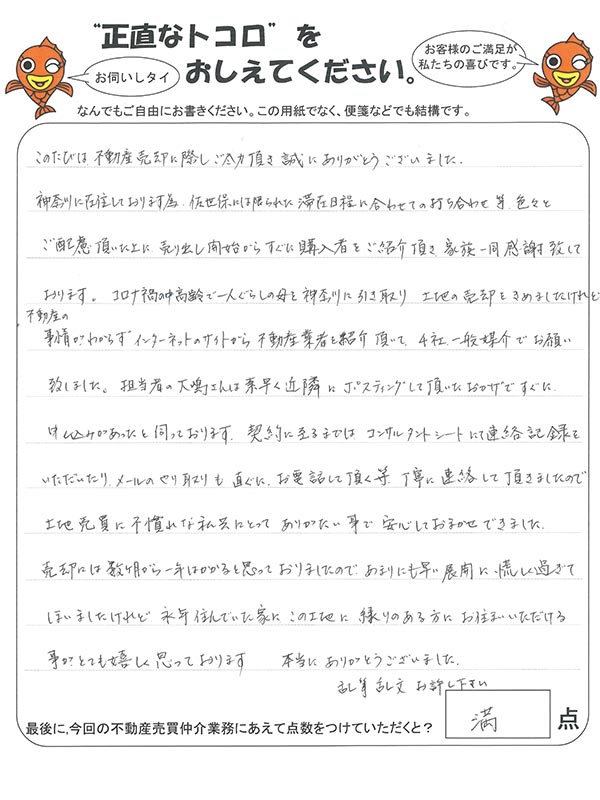 "正直なトコロ"を
おしえてください。
お伺いしタイ
お客様のご満足が
私たちの喜びです。
なんでもご自由にお書きください。この用紙でなく、便箋などでも結構です。
このたびは不動産売却に際しご尽力頂き誠にありがとうございました。
神奈川に在住しております為、佐世保には限られた滞在日程に合わせての打ち合わせ等、色々と
ご配慮頂いた上に売り出し開始からすぐに購入者をご紹介頂き家族一同感謝致して
おります。コロナ禍の中高齢で一人ぐらしの母を神奈川に引き取り 土地の売却をきめましたけれど
不動産の
事情がわからずインターネットのサイトから不動産業者を紹介頂いて、4社一般媒介でお願い
致しました。担当者の大鳴さんは素早く近隣にポスティングして頂いたおかげですぐに
申し込みがあったと伺っております。契約に至るまでは コンサルタントシートにて連絡記録を
いただいたり、メールのやり取りも直ぐに、お電話して頂く等 丁寧に連絡して頂きましたので
土地売買に不慣れな私共にとって ありがたい事で安心しておまかせできました。
売却には数ヶ月から一年はかかると思っておりましたので、あまりにも早い展開に慌しく過ぎて
しまいましたけれど 永年住んでいた家に この土地に縁りのある方に お住まいいただける
事がとても嬉しく思っております 本当にありがとうございました。
乱筆乱文お許し下さい
最後に、今回の不動産売買仲介業務にあえて点数をつけていただくと?
満 点